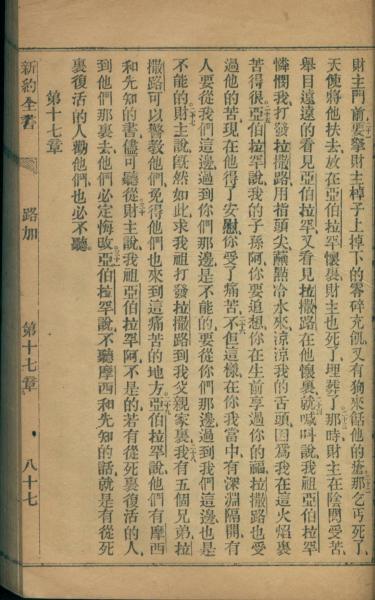 財主門前要拏財主棹子上掉下的零碎充飢又有狗來餂他的瘡那乞丐死了
天使將他扶去放在亞伯拉罕懷裏財主也死了埋葬了那時財主在陰間受苦
舉目遠遠的看見亞伯拉罕又看見拉撒路在他懷裏就喊叫說我祖亞伯拉罕
憐憫我打發拉撒路用指頭尖蘸點冷水來涼涼我的舌頭因爲我在這火焰裏
苦得很亞伯拉罕說我的子孫阿你要追想你在生前享過你的福拉撒路也受
過他的苦現在他得了安慰你受了痛苦不但這樣在你我當中有深淵隔開有
人要從我們這邊過到你們那邊是不能的要從你們那邊過到我們這邊也是
不能的財主說旣然如此求我祖打發拉撒路到我父親家裏我有五個兄弟拉
撒路可以警敎他們免得他們也來到這痛苦的地方亞伯拉罕說他們有摩西
和先知的書儘可聽從財主說我祖亞伯拉罕阿不是的若有從死裏復活的人
到他們那裏去他們必定悔改亞伯拉罕說不聽摩西和先知的話就是有從死
裏復活的人勸他們也必不聽
第十七章
新約全書
路加
第十七章
八十七